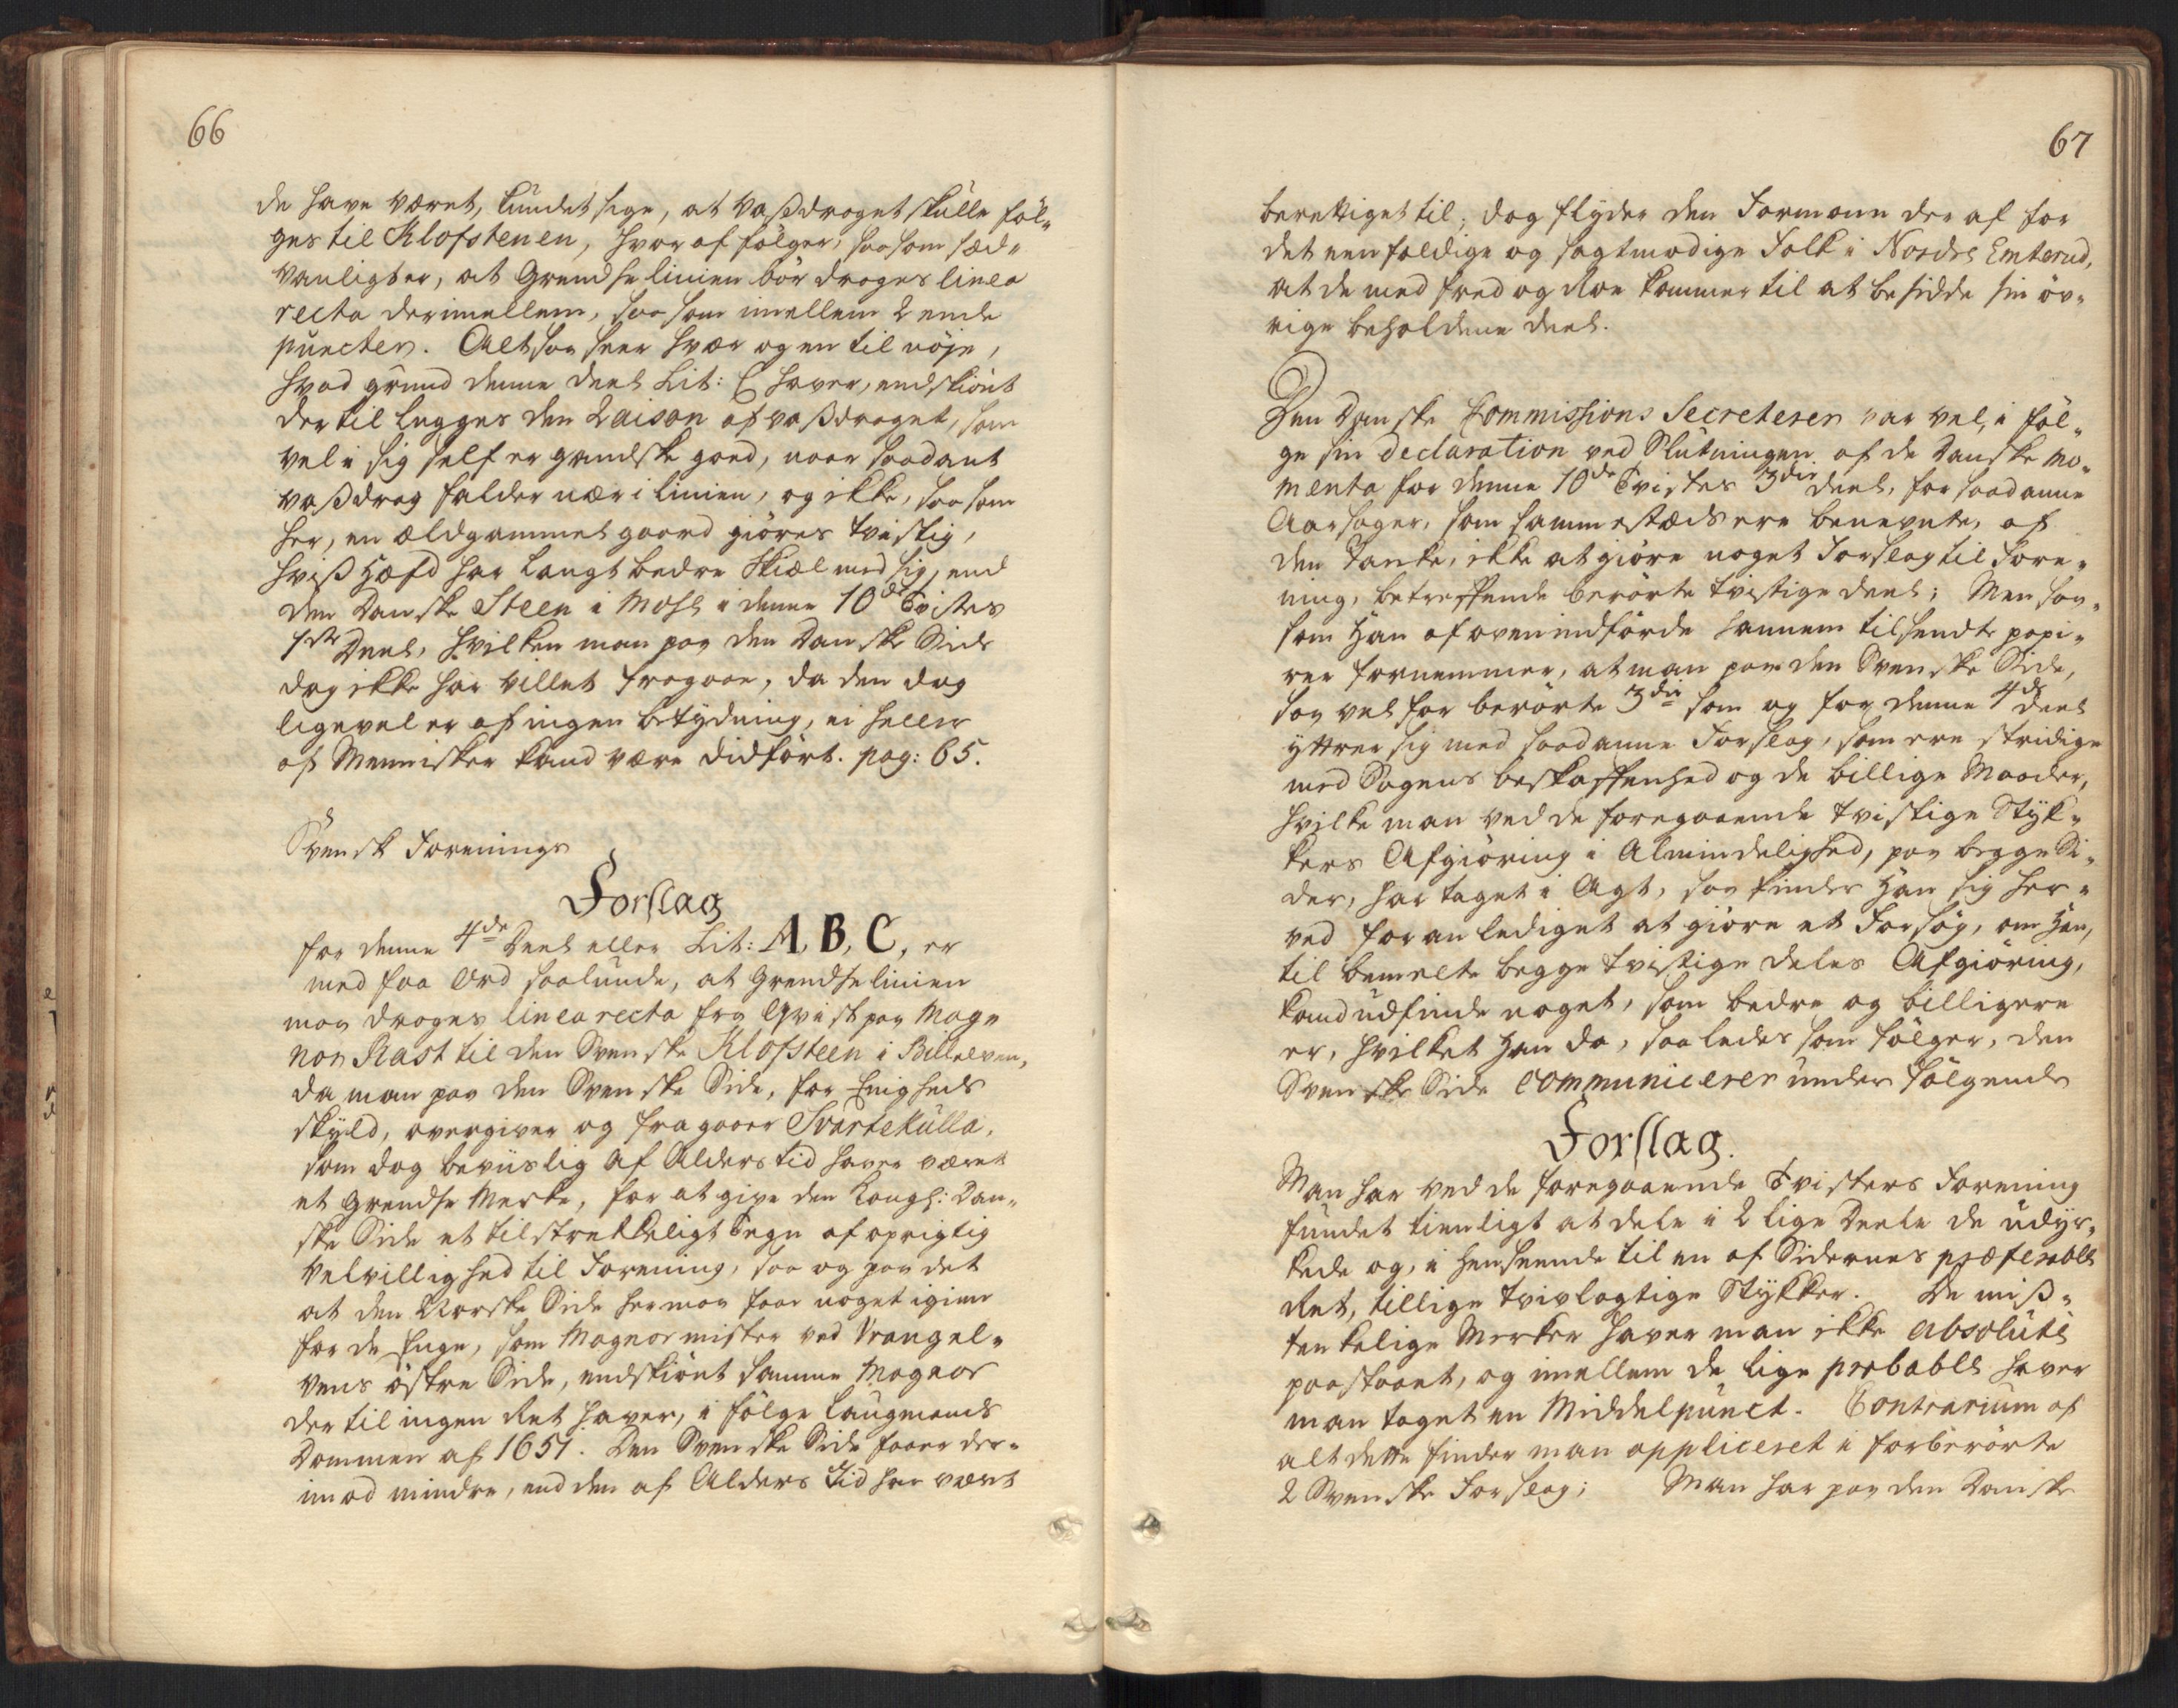 66
de have været, kundet sige, at Vaßdraget skulle föl-
ges til Klofstenen, hvoraf fölger, saasom sæd-
vanligt er, at Grendse linien bör drages linea
recta derimellem, saasom imellem 2 ende
puncter. Altsaa seer hvær og en til nöje,
hvad grund denne deel Lit: C haver, endskiönt
der til legges den Raison af vaßdraget, som
vel i sig self er gandske goed, naar saadant
vaßdrag falder nær i linien, og ikke, saasom
her, en ældgammel gaard giöres tvistig,
hviß Hæfd har langt bedre Skiæl med sig, end
den Danske Steen i Mose i denne 10de Tvistes
1ste Deel, hvilken man paa den Danske Side
dog ikke har villet fragaae, da den dog
ligevel er af ingen betydning, ei heller
af Mennisker kand være didfört. pag: 65.
Svensk Forenings
Forslag
for denne 4de Deel eller Lit: A, B, C, er
med faa Ord saalunde, at Grendse linien
maa drages linea recta fra Qvist paa Mag-
nor Rast til den Svenske Klofsteen i Billelven,
da man paa den Svenske Side, for Enigheds
skyld, overgiver og fragaaer Svartekulla,
som dog beviislig af Alders tid haver været
et Grendse Merke, for at give den Kongl: Dan-
ske Side et tilstrekkeligt Tegn af oprigtig
Velvillighed til Forening, saa og paa det
at den Norske Side her maa faae noget igien
for de Enge, som Magnor mister ved Vrangel-
vens östre Side, endskiönt samme Magnor
der til ingen Ret haver, i fölge Laugmands
Dommen af 1651. Den Svenske Side faaer der-
imod mindre, end den af Alders Tid har været
67
berettiget til; dog flyder den Formaan der af for
det eenfoldige og sagtmodige Folk i Nordre Emterud,
at de med fred og Roe kommer til at besidde sin öv-
rige beholdene deel.
Den Danske Commissions Secreterer var vel, i föl-
ge sin Declaration ved Slutningen af de Danske Mo-
menta for denne 10de Tvistes 3die deel, for saadanne
Aarsager, som sammestæds ere benevnte, af
den Tanke, ikke at giöre noget Forslag til Fore-
ning, betreffende berörte tvistige deel; Men saa-
som Han af oven indförde hannem tilsendte papi-
rer fornemmer, at man paa den Svenske Side,
saa vel for berörte 3die som og for denne 4de deel
yttrer sig med saadanne Forslag, som ere stridige
med Sagens beskaffenhed og de billige Maader,
hvilke man ved de foregaaende tvistige Styk-
kers Afgiöring i Almindelighed, paa begge Si-
der, har taget i Agt, saa finder Han sig her-
ved foranlediget at giöre et Forsög, om Han,
til bemelte begge tvistige deles Afgiöring,
kand udfinde noget, som bedre og billigere
er, hvilket Han da, saaledes som fölger, den
Svenske Side communicerer under fölgende
Forslag.
Man har ved de foregaaende Tvisters Forening
fundet tienligt at dele i 2 lige Deele de udyr-
kede og, i henseende til en af Sidernes præferable
Ret, tillige tvivlagtige Stykker. De miß-
tenkelige Merker haver man ikke absolutè
paastaaet, og imellem de lige probable haver
man taget en Middelpunct. Contrarium af
alt dette finder man appliceret i forberörte
2 Svenske Forslag; Man har paa den Danske